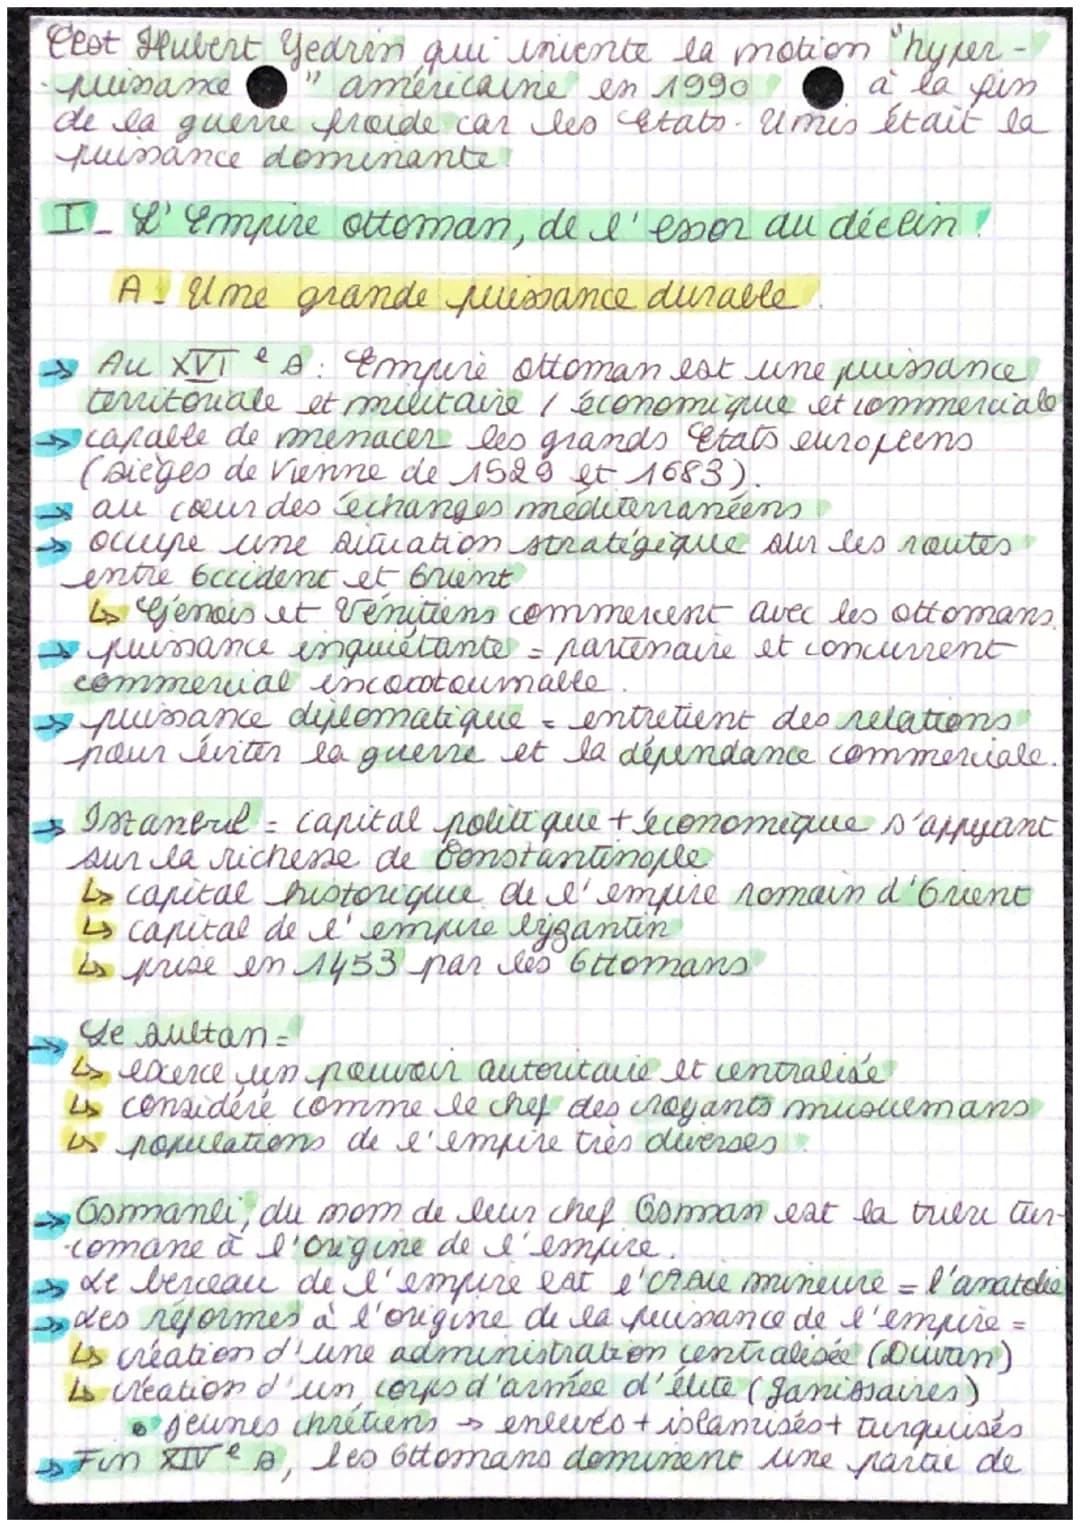 C'est Hubert Vedrin qui inivente la motion "hyper-
puissance" américaine en 1990 à la fin
de la guerre froide car les Etats-Unis était la
puissance dominante
I- L'Empire ottoman, de l'essor au déclin !
A- Une grande puissance durable.
→ Au XVIe s : Empire ottoman est une puissance
territoriale et militaire / économique et commerciale
→ capable de menacer les grands Etats européens
(sièges de Vienne de 1529 et 1683).
→ au coeur des échanges méditerranéens
→ occupe une situation stratégique sur les routes
entre Occident et Orient
↳ Génois et Vénitiens commercent avec les ottomans.
→ puissance inquiétante = partenaire et concurrent
commercial
→ puissance diplomatique = entretient des relations
pour éviter la guerre et la dépendance commerciale.
→ Istanbul = capital politique + économique s'appyant
sur la richesse de Constantinople
↳ capital historique de l'empire romain d'Orient
↳ capital de l'empire byzantin
↳ prise en 1453 par les Ottomans
→ Le sultan =
↳ exerce un pouvoir autoritaire et centralisé
↳ considéré comme le chef des croyants musulmans
↳ populations de l'empire très diverses
→ Osmanli, du nom de leur chef Osman est la tribu tur-
comane à l'origine de l'empire.
→ Le berceau de l'empire est l'Asie mineure = l'anatolie
→ des réformes à l'origine de la puissance de l'empire =
↳ création d'une administration centralisée (Divan)
↳ création d'un corps d'armée d'élite (Janissaires)
• jeunes chrétiens → enlevés + islamisés + turquisés
→ Fin XIVe s, les Ottomans dominent une partie de